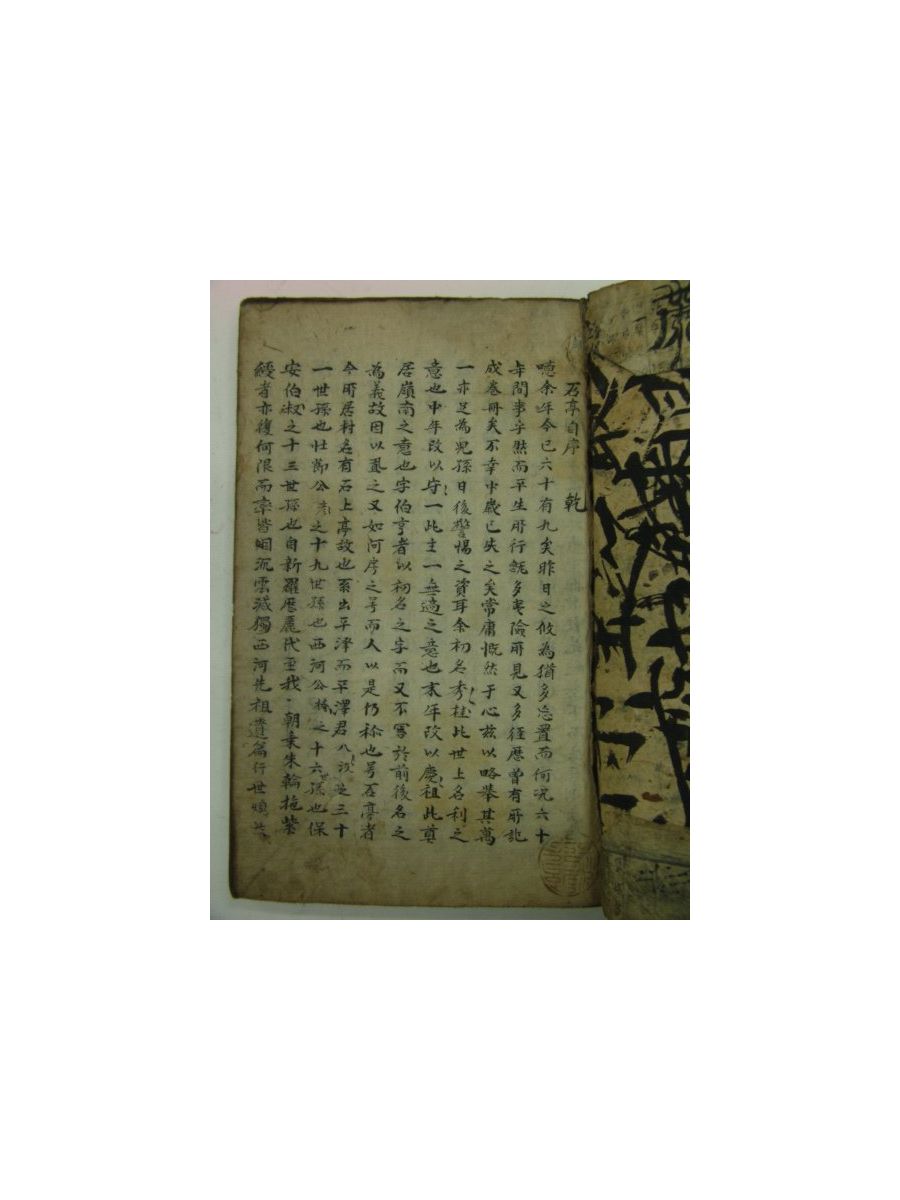 石亭自序 乾
噫余年今已六十有九矣昨日之攸為猶多忘置而何况六十
年間事乎然而平生所行旣多夷險所見又多經歷曽有所記
成卷冊矣不幸中歲已失之矣常庸慨然于心玆以略擧其萬
一亦足為兒孫日後警惕之資耳余初名秀桂此世上名利之
意也中年改以守一此主一無適之意也末年改以慶祖此奠
居嶺南之意也字伯亨者以初名之字而又不害於前後名之
為義故因以置之又如何序之号而人以是仍称也号石亭者
今所居村名有石上亭故也系出平澤而平澤君八汲是三十
一世孫也壯節公彦之十九世孫也西河公椿之十六世孫也保
安伯淑之十三世孫也自新羅歷麗代至我朝乘朱輪拖紫
綬者亦復何限而率皆烟沉雲滅獨西河先祖遺篇行世